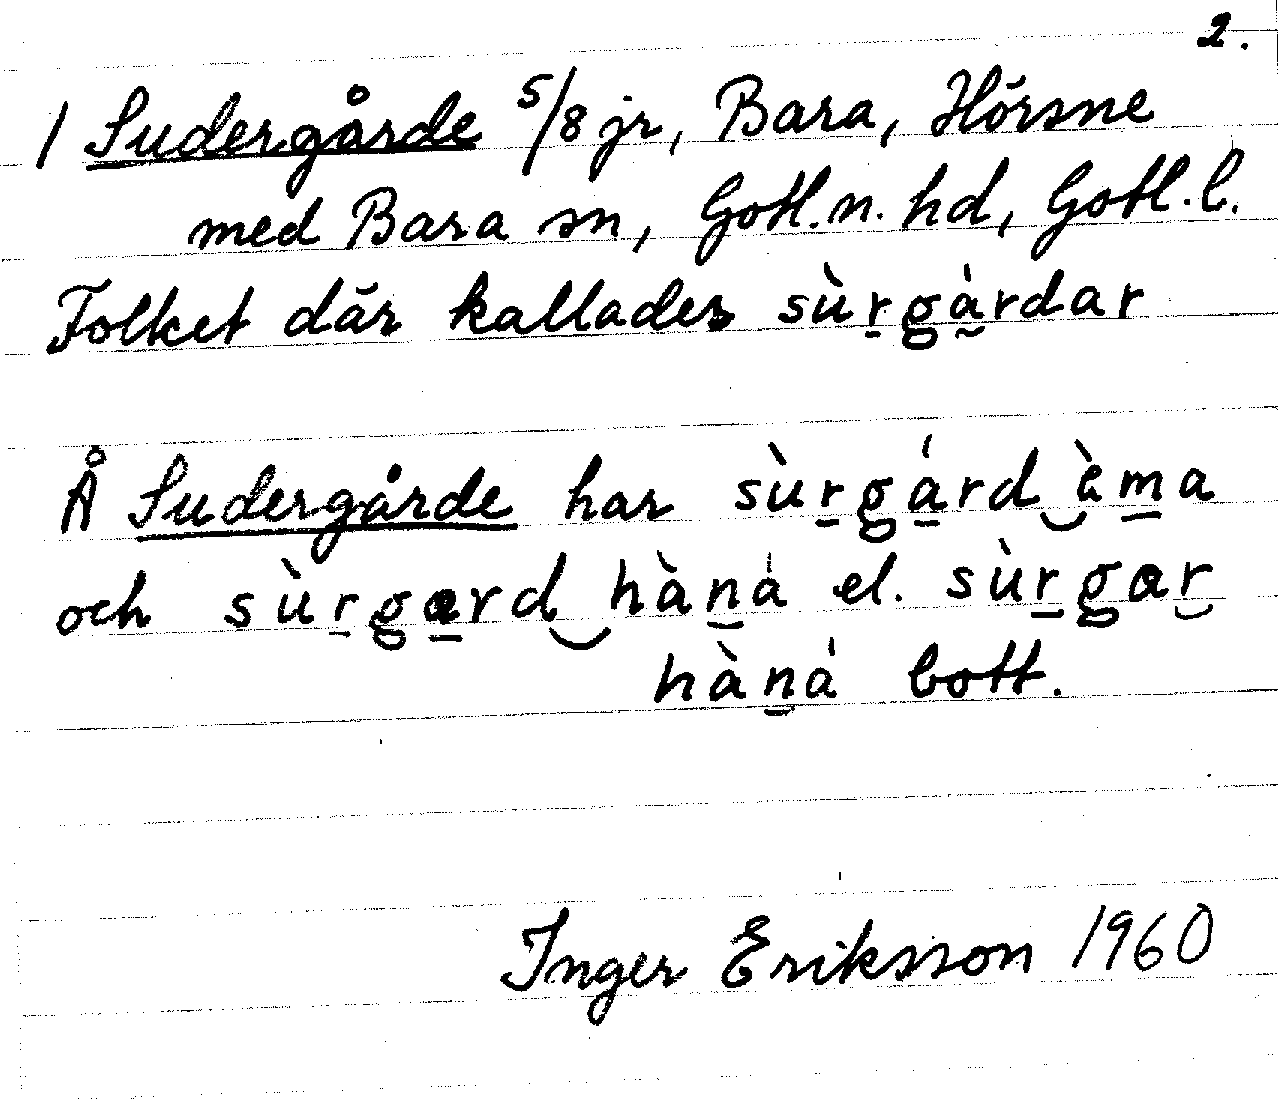 2.
1 Sudergårde 5/8 jr, Bara, Hörsne
med Bara sn, Gotl. n. hd, Gotl. l.
Folket där kallades sùr̠g̠a̠̍rdar
Å Sudergårde har sùr̠g̠a̠̍rd‿èm̠a
och sùr̠g̠a̠rd‿hàn̠a̍ el. sùr̠g̠ar̮
hàn̠a̍ bott.
Inger Eriksson 1960